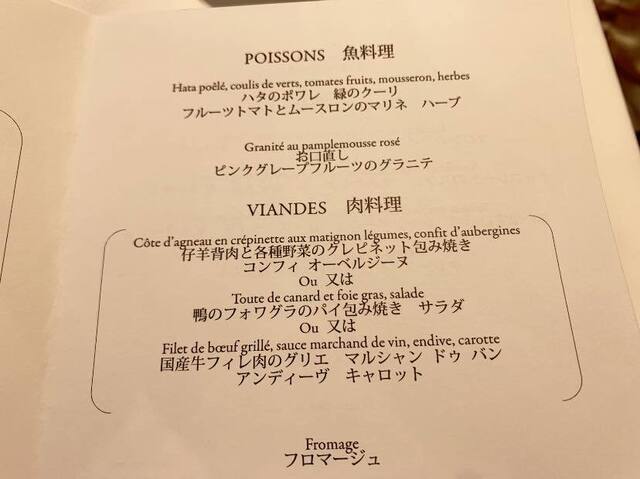 POISSONS 魚料理
Hata poêlé, coulis de verts, tomates fruits, mousseron, herbes
ハタのポワレ 緑のクーリ
フルーツトマトとムースロンのマリネ ハーブ
Granité au pamplemousse rosé
お口直し
ピンクグレープフルーツのグラニテ
VIANDES 肉料理
Côte d'agneau en crépinette aux matignon légumes, confit d'aubergines
仔羊背肉と各種野菜のグレピネット包み焼き
コンフィ オーベルジーヌ
Ou 又は
Toute de canard et foie gras, salade
鴨のフォワグラのパイ包み焼き サラダ
Ou 又は
Filet de bœuf grillé, sauce marchand de vin, endive, carotte
国産牛フィレ肉のグリエ マルシャン ドゥ バン
アンディーヴ キャロット
Fromage
フロマージュ